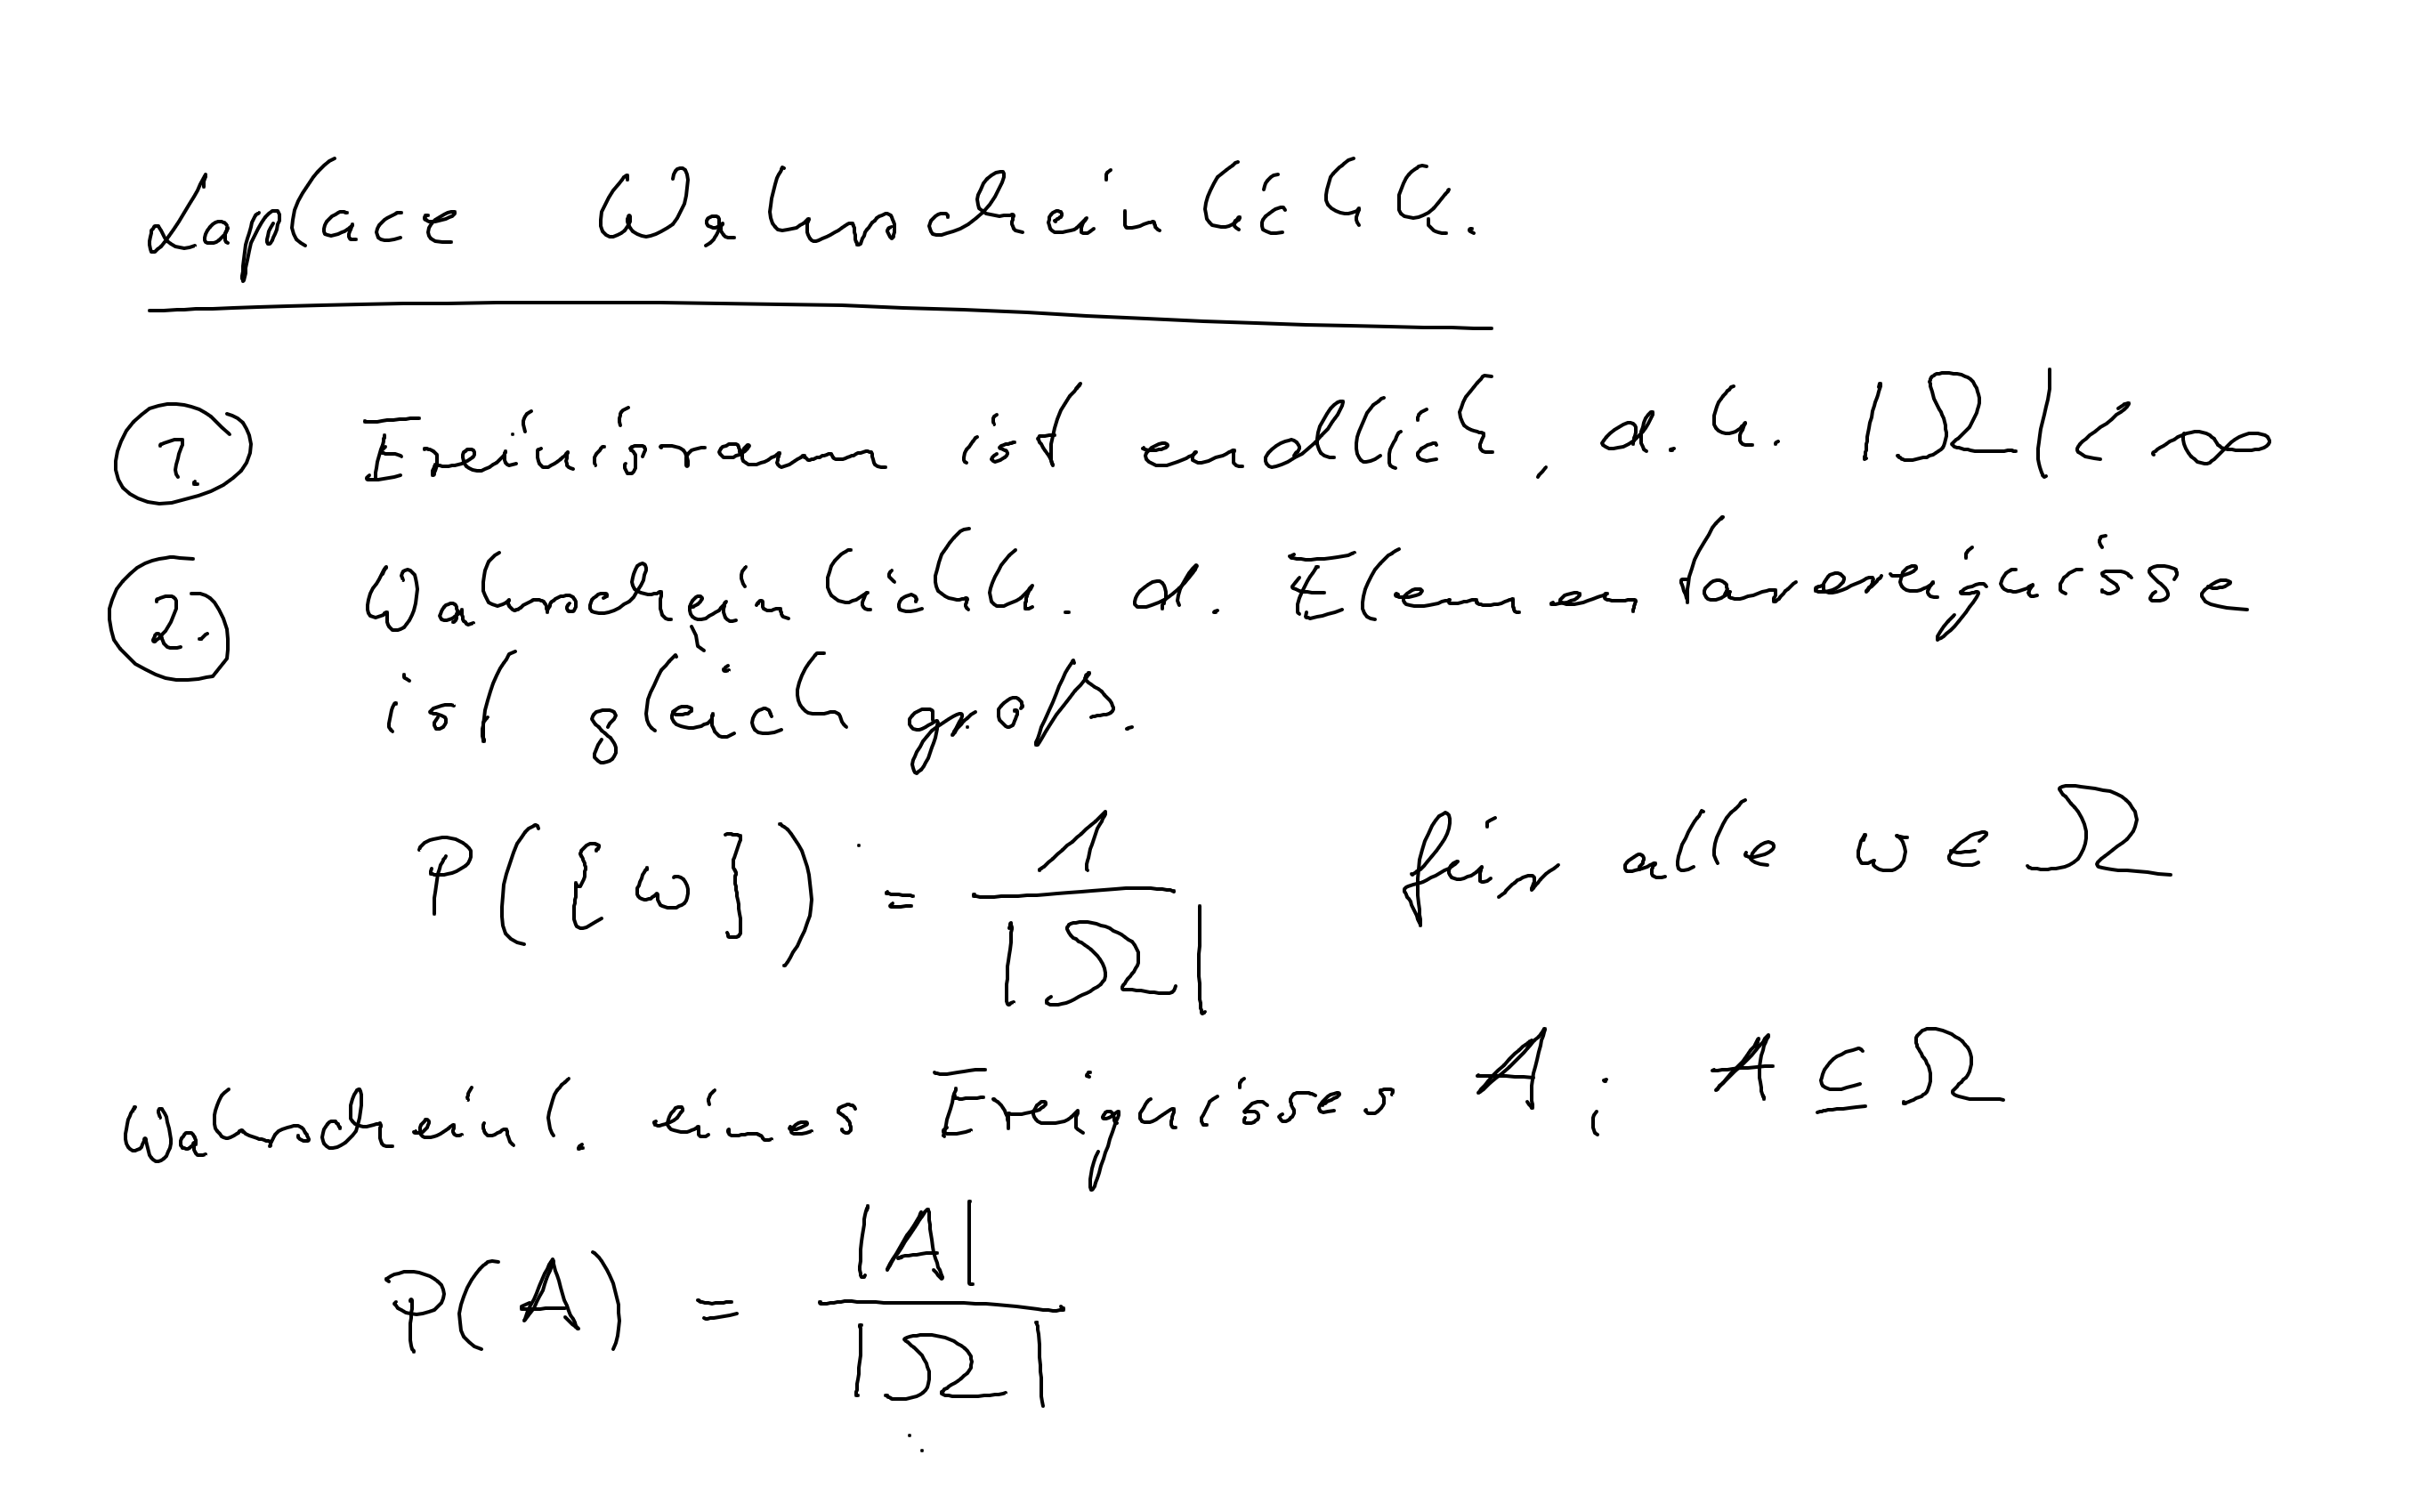 Laplace Wahrscheinlichk.
1. Ereignisraum ist endlich, d.h. |Ω| < ∞
2. Wahrscheinlichk. d. Elementarereignisse
ist gleich groß.
P({ω}) = 1/|Ω| für alle ω ∈ Ω
Wahrscheinl. eines Ereignisses A; A ⊆ Ω
P(A) = |A|/|Ω|